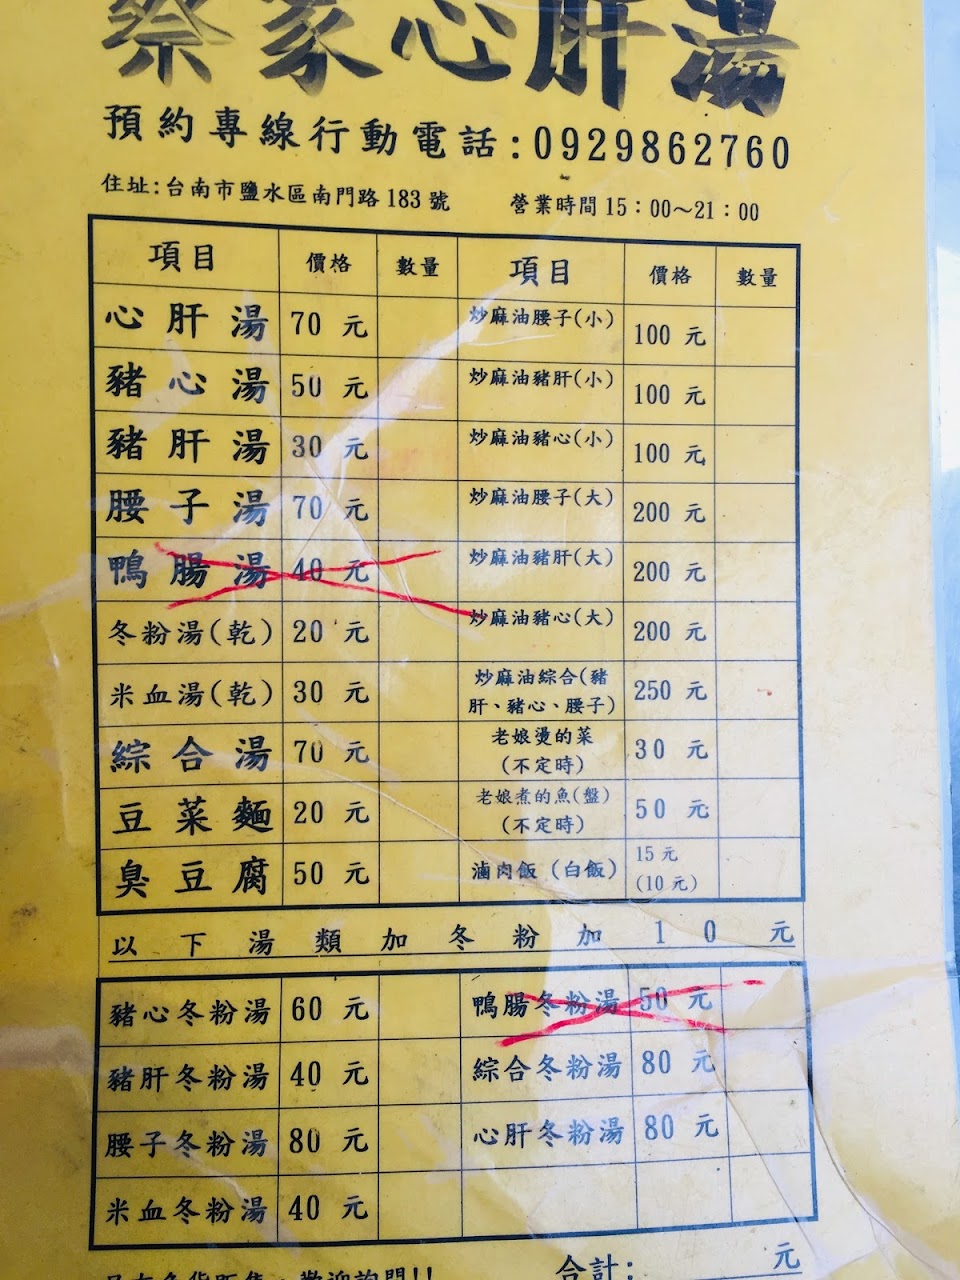 蔡家心肝湯
預約專線行動電話:0929862760
住址:台南市鹽水區南門路183號 營業時間15:00~21:00
項目 價格 數量 項目 價格 數量
心肝湯 70 元 炒麻油腰子(小) 100 元
豬心湯 50 元 炒麻油豬肝(小) 100 元
豬肝湯 30 元 炒麻油豬心(小) 100 元
腰子湯 70 元 炒麻油腰子(大) 200 元
鴨腸湯 40 元 炒麻油豬肝(大) 200 元
冬粉湯(乾) 20 元 炒麻油豬心(大) 200 元
米血湯(乾) 30 元 炒麻油綜合(豬
肝、豬心、腰子) 250 元
綜合湯 70 元 老娘燙的菜
(不定時) 30 元
豆菜麵 20 元 老娘煮的魚(盤)
(不定時) 50 元
臭豆腐 50 元 滷肉飯 (白飯) 15 元
(10 元)
以下湯類加冬粉加10元
豬心冬粉湯 60 元 鴨腸冬粉湯 50 元
豬肝冬粉湯 40 元 綜合冬粉湯 80 元
腰子冬粉湯 80 元 心肝冬粉湯 80 元
米血冬粉湯 40 元
歡迎詢問!! 合計: 元